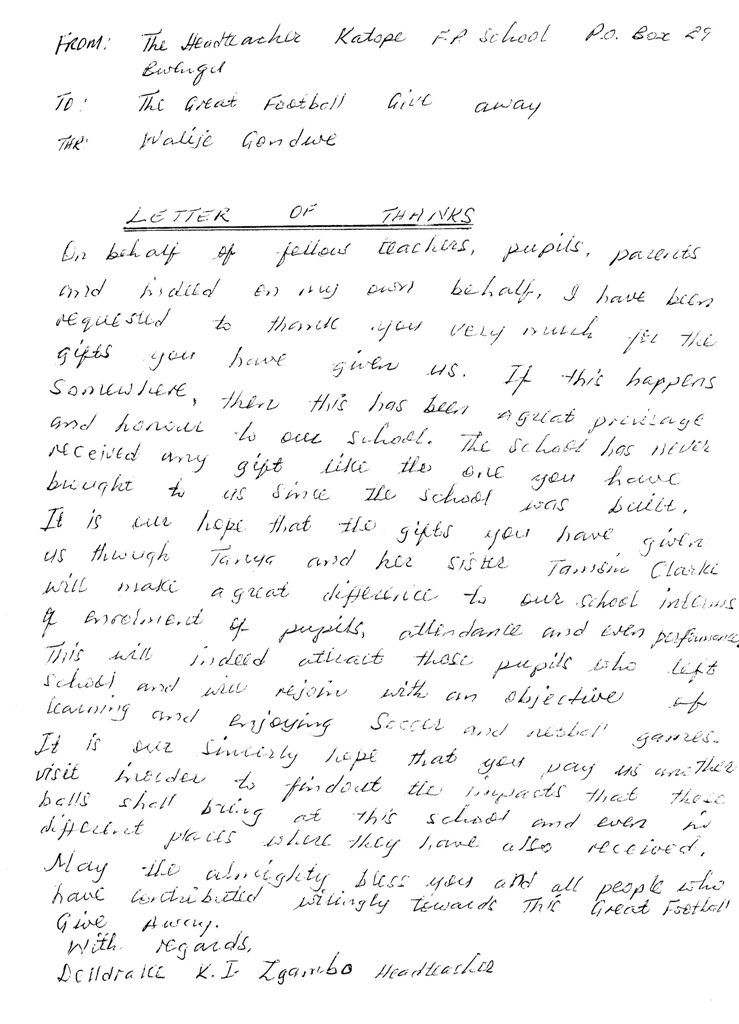 FROM: The Headteacher Katope F.P School P.O. Box 29
TO: The Great Football Give away
THR: Walije Gondwe
LETTER OF THANKS
On behalf of fellow teachers, pupils, parents
and indeed on my own behalf, I have been
requested to thank you very much for the
gifts you have given us. If this happens
somewhere, then this has been a great privilage
and honour to our school. The school has never
received any gift like the one you have
brought to us since the school was built.
It is our hope that the gifts you have given
us through Tanya and her sister Tamsin Clarke
will make a great difference to our school interms
of enrolment of pupils, attendance and even performance.
This will indeed attract those pupils who left
school and will rejoin with an objective of
learning and enjoying soccer and netball games.
It is our sincerly hope that you pay us another
visit inorder to findout the impacts that these
balls shall bring at this school and even in
different places where they have also received.
May the almighty bless you and all people who
have contributed willingly towards This Great Football
Give Away.
With regards,
K.I Zgambo Headteacher